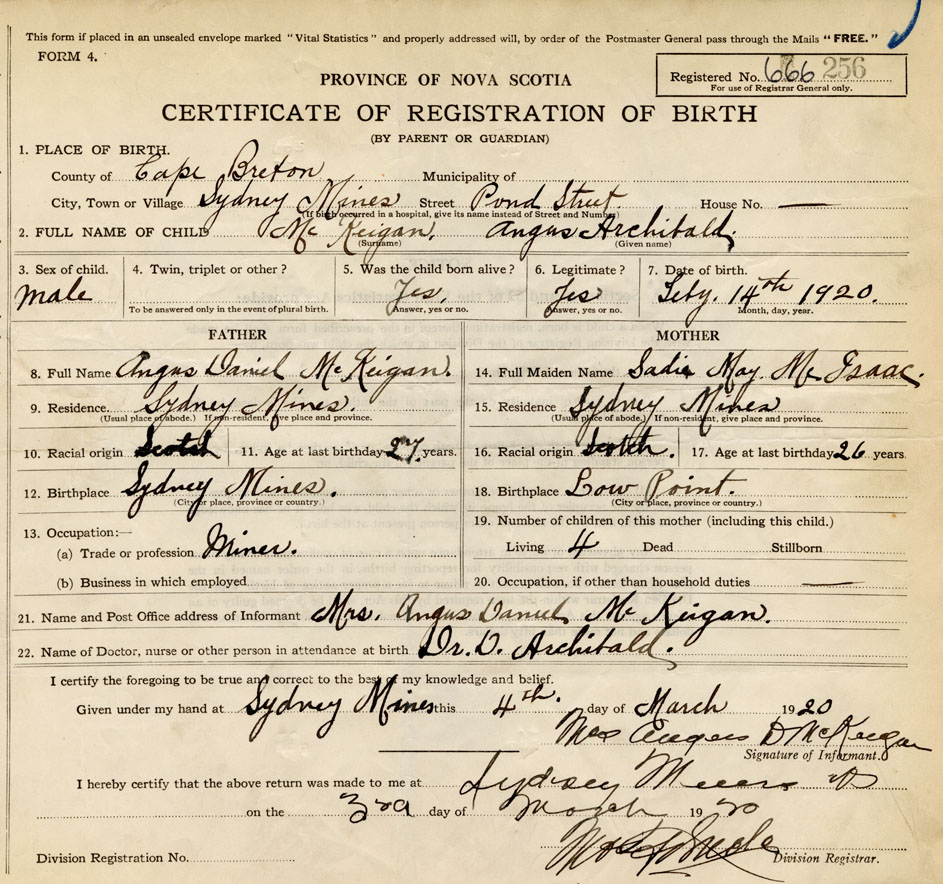 This form if placed in an unsealed envelope marked "Vital Statistics" and properly addressed will, by order of the Postmaster General pass through the Mails "FREE."
FORM 4.
Registered No. 666 256
For use of Registrar General only.
PROVINCE OF NOVA SCOTIA
CERTIFICATE OF REGISTRATION OF BIRTH
(BY PARENT OR GUARDIAN)
1. PLACE OF BIRTH.
County of Cape Breton Municipality of
City, Town or Village Sydney Mines Street Pond Street. House No. —
(If birth occurred in a hospital, give its name instead of Street and Number)
2. FULL NAME OF CHILD Mc Keigan, Angus Archibald.
(Surname) (Given name)
3. Sex of child. 4. Twin, triplet or other? 5. Was the child born alive? 6. Legitimate? 7. Date of birth.
Male Yes. Yes Feby. 14th 1920.
To be answered only in the event of plural birth. Answer, yes or no. Answer, yes or no. Month, day, year.
FATHER MOTHER
8. Full Name Angus Daniel McKeigan. 14. Full Maiden Name Sadie May. Mc Isaac.
9. Residence. Sydney Mines. 15. Residence Sydney Mines
(Usual place of abode.) If non-resident, give place and province. (Usual place of abode.) If non-resident, give place and province.
10. Racial origin Scotch 11. Age at last birthday 27. years. 16. Racial origin Scotch. 17. Age at last birthday 26 years.
12. Birthplace Sydney Mines. 18. Birthplace Low Point.
(City or place, province or country.) (City or place, province or country.)
13. Occupation:— 19. Number of children of this mother (including this child.)
(a) Trade or profession Miner. Living 4 Dead Stillborn
(b) Business in which employed 20. Occupation, if other than household duties —
21. Name and Post Office address of Informant Mrs. Angus Daniel Mc Keigan.
22. Name of Doctor, nurse or other person in attendance at birth Dr. D. Archibald.
I certify the foregoing to be true and correct to the best of my knowledge and belief.
Given under my hand at Sydney Mines this 4th. day of March 1920
Mrs Angus D McKeigan
Signature of Informant.
I hereby certify that the above return was made to me at Sydney Mines
on the 3rd day of March 1920
Division Registration No. Division Registrar.